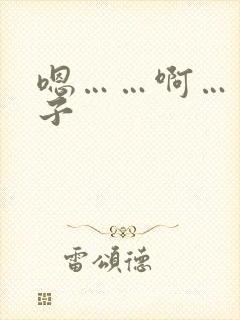 嗯……啊…
子
雷頌德